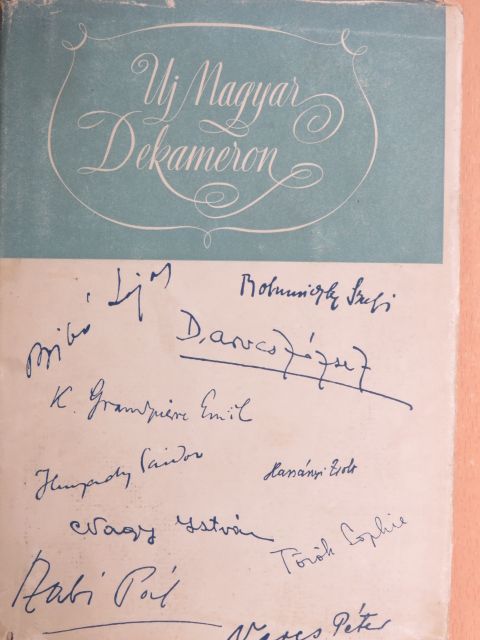 Uj Magyar
Dekameron
Bibó Lajos
Bohuniczky Szefi
Darvas József
K. Grandpierre Emil
Hunyady Sándor
Harsányi Zsolt
Nagy István
Török Sophie
Szabó Pál
Veres Péter